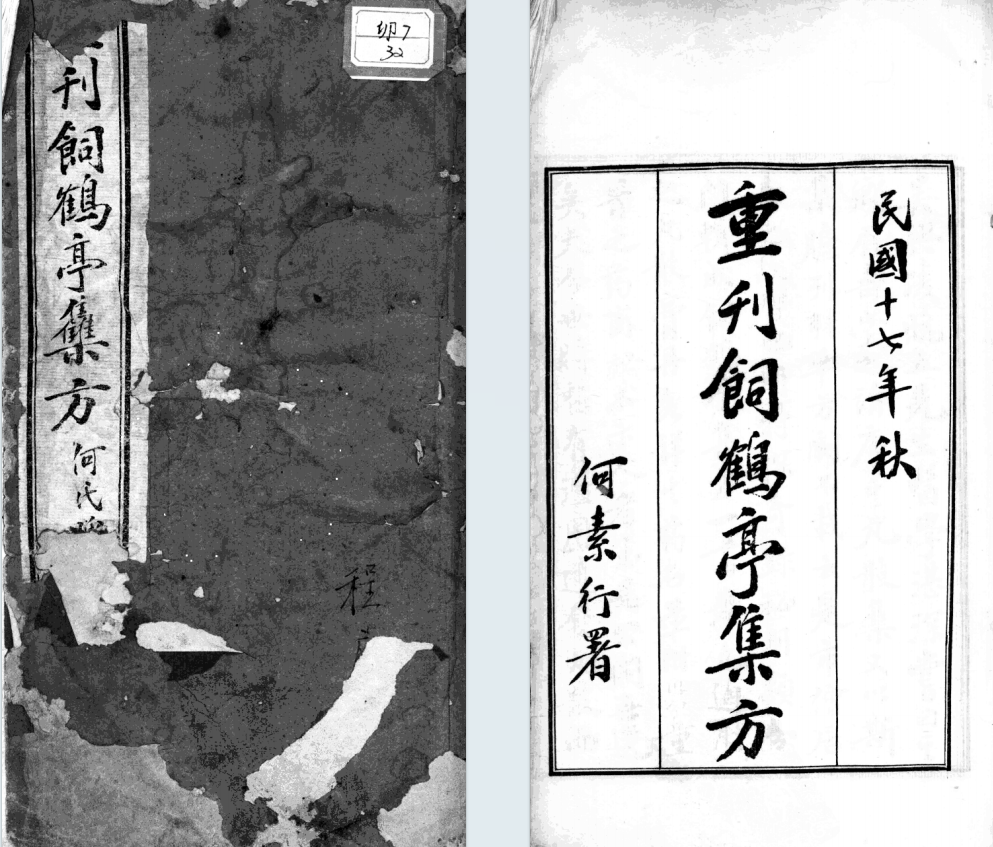 刊飼鶴亭集方
何氏
32
程
民國十七年秋
重刊飼鶴亭集方
何素行署